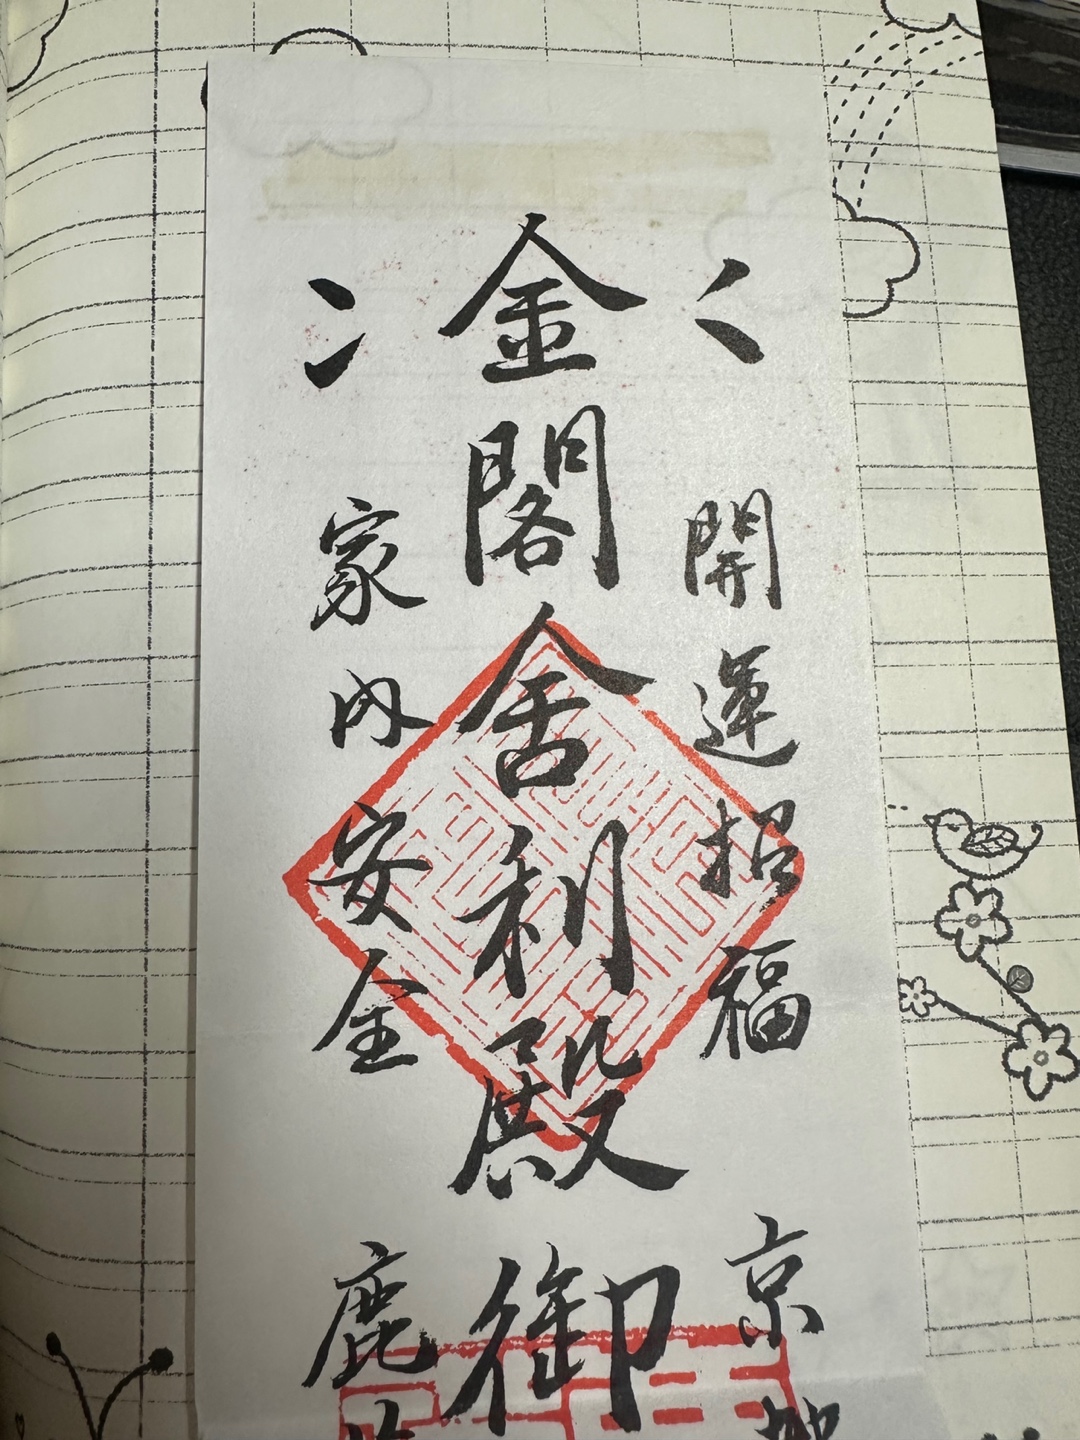 開運招福 京
金閣舎利殿 御
家内安全 鹿